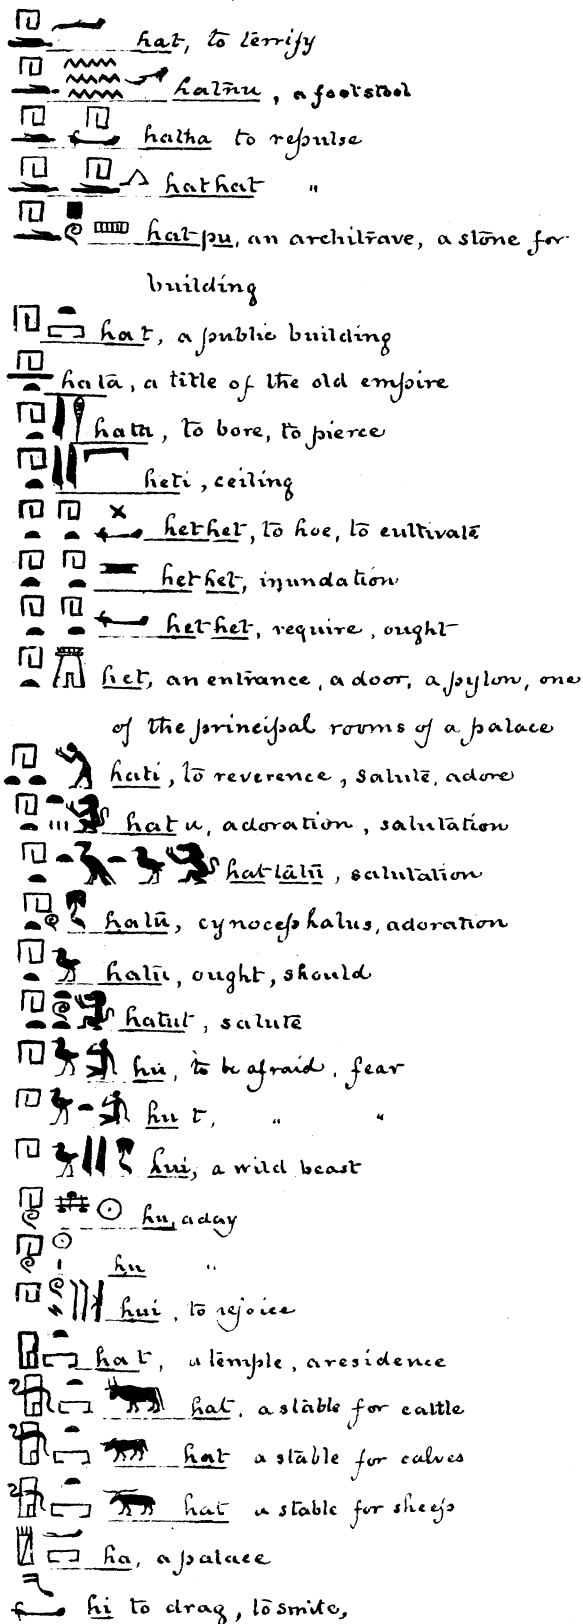 hat, to terrify
hatnu, a footstool
hatha to repulse
hathat "
hatpu, an architrave, a stone for
building
hat, a public building
hata, a title of the old empire
hata, to bore, to pierce
heti, ceiling
hethet, to hoe, to cultivate
hethet, inundation
hethet, require, ought
het, an entrance, a door, a pylon, one
of the principal rooms of a palace
hati, to reverence, salute, adore
hatu, adoration, salutation
hattatu, salutation
hatu, cynocephalus, adoration
hatu, ought, should
hatut, salute
hu, to be afraid, fear
hut, " "
hui, a wild beast
hu, a day
hu "
hui, to rejoice
hat, a temple, a residence
hat, a stable for cattle
hat a stable for calves
hat a stable for sheep
ha, a palace
hi to drag, to smite,